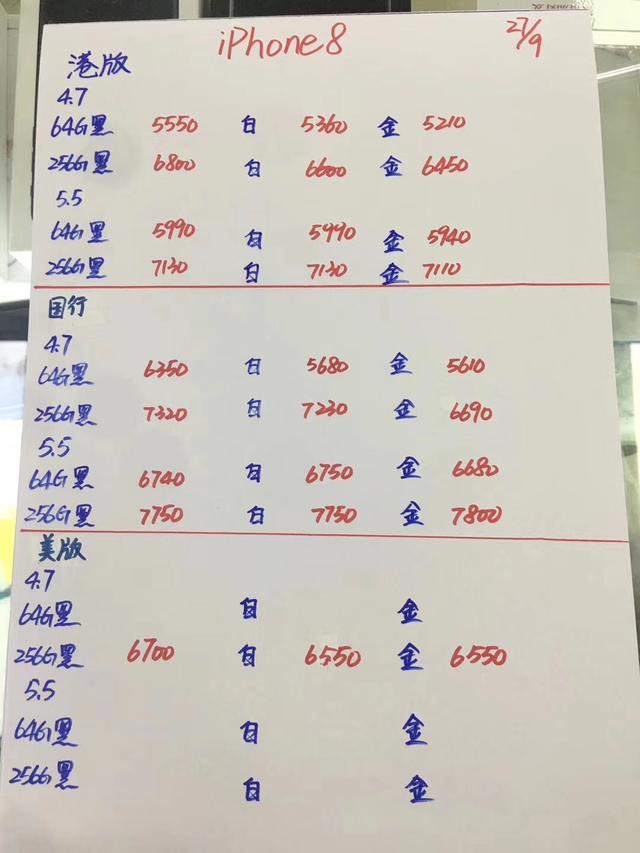 iPhone8 27/9
港版
4.7
64G黑 5550 白 5360 金 5210
256G黑 6800 白 6600 金 6450
5.5
64G黑 5990 白 5990 金 5940
256G黑 7130 白 7130 金 7110
国行
4.7
64G黑 6350 白 5680 金 5610
256G黑 7320 白 7230 金 6690
5.5
64G黑 6740 白 6750 金 6680
256G黑 7750 白 7750 金 7800
美版
4.7
64G黑 白 金
256G黑 6700 白 6550 金 6550
5.5
64G黑 白 金
256G黑 白 金